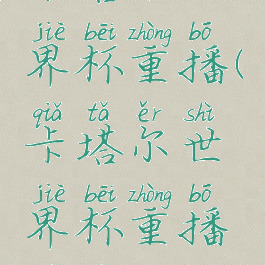 jiè bēi zhòng bō
界杯重播(
qiǎ tǎ ěr shì
卡塔尔世
jiè bēi zhòng bō
界杯重播